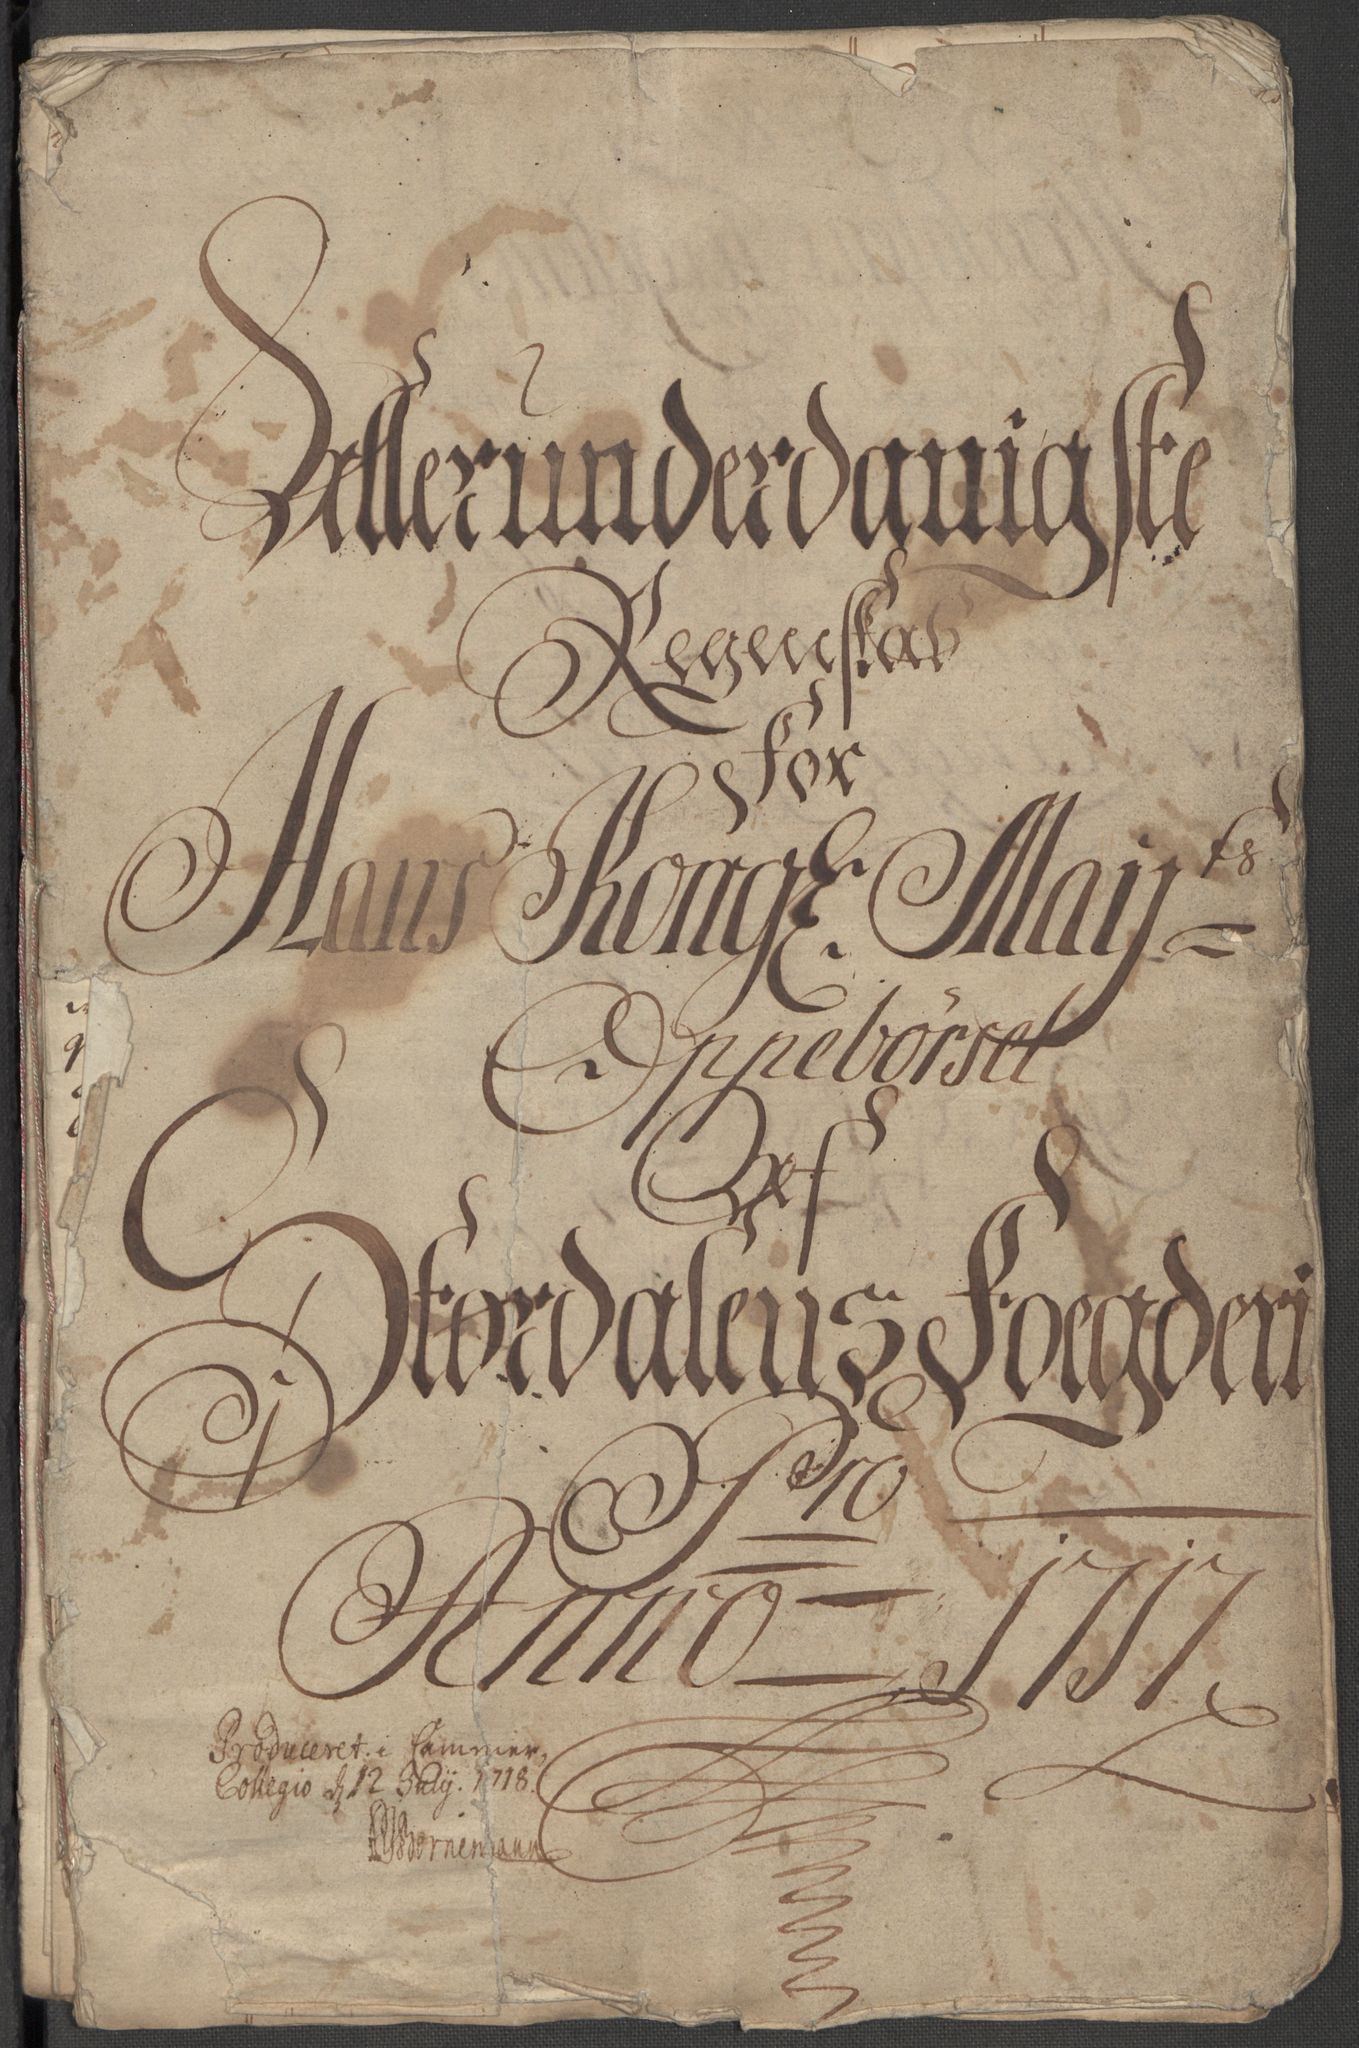 Allerunderdanigste
Regenskab
for
Hans Kongl. Mayts
Oppebörsel
Af
Stordalens Foegderi
Pro
Anno 1717
Produceret i Cammer,
Collegio d 12 July. 1718.
Bornemann